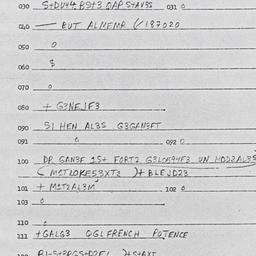 030 S+DU44 B9+3 QAP S+AV3S 031 0
040 — BUT ALMEMR (/187020
050 0
060 $
070 0
080 + G3NEJF3
090 51 HEN AL3S G3GAN3FT
091 0 092 0
100 DR GAN3F 1S+ FORT2 G3LO594F3 UN MOD2AL3S
( M9TLOKE53XT2 )+ BLEJD23
101 + M9T2AL3M 102 0
103 0
110 0
111 +GALG3 QGLFRENCH POTENCE